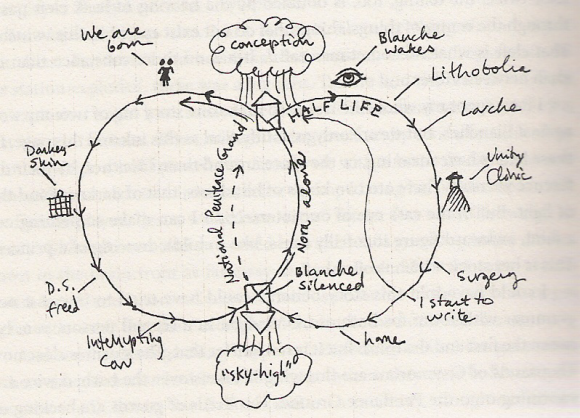 We are
born
conception
Blanche
wakes
Lithobolia
HALF LIFE
Larche
Donkey-
skin
National Penitence Ground
Nora alone
Unity
Clinic
D.S.
freed
Blanche
silenced
Surgery
I start to
write
Interrupting
Cow
home
"sky-high"